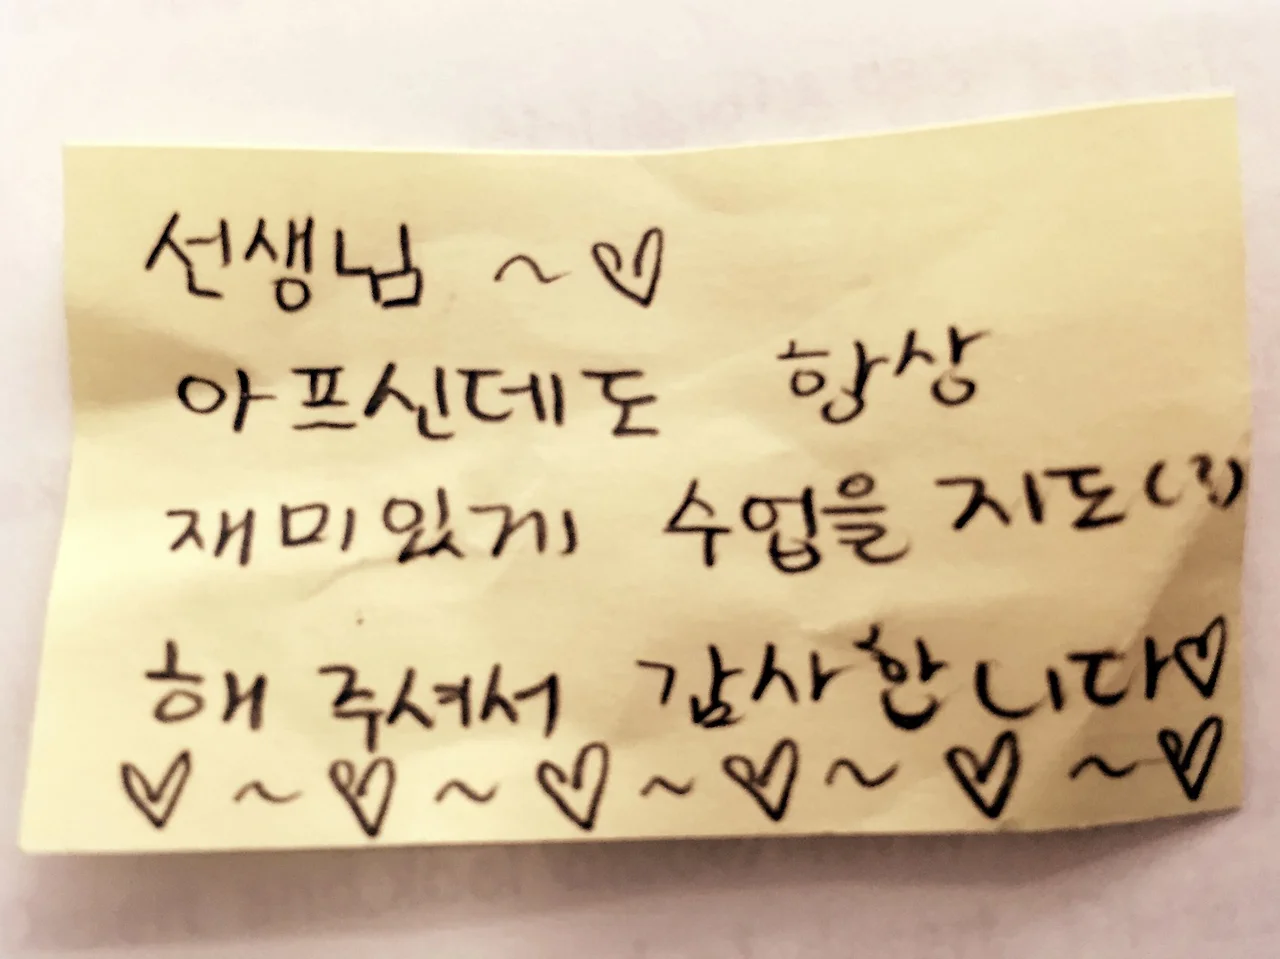 선생님 ~♡
아프신데도 항상
재미있게 수업을 지도(?)
해 주셔서 감사한니다♡
♡~♡~♡~♡~♡~♡